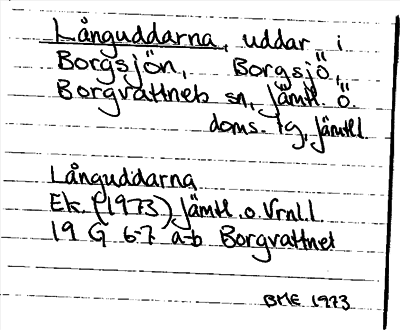 Långuddarna, uddar i
Borgsjön, Borgsjö,
Borgvattnets sn, Jämtl. Ö.
doms. lg, Jämtl.
Långuddarna
Ek. (1973) Jämtl. o. Vrnl. l.
19 G 6-7 a-b Borgvattnet
BME 1973